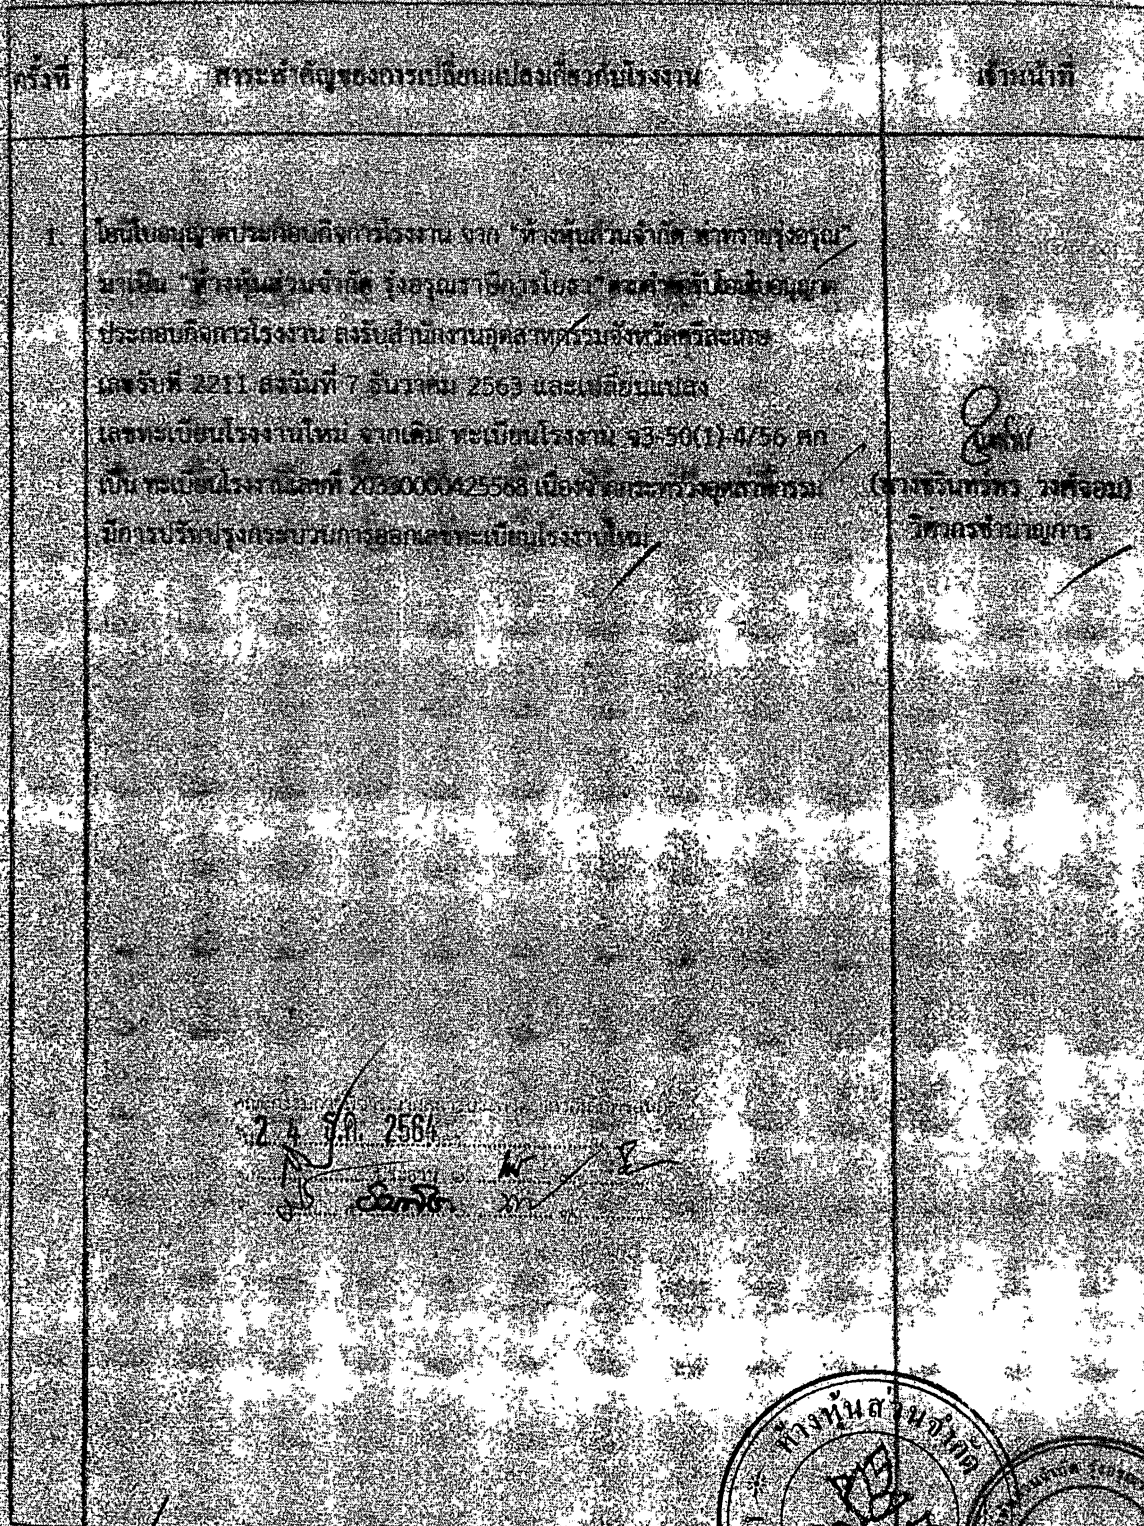 ครั้งที่ สาระสำคัญของการเปลี่ยนแปลงเกี่ยวกับโรงงาน เจ้าหน้าที่
1. โอนใบอนุญาตประกอบกิจการโรงงาน จาก "ห้างหุ้นส่วนจำกัด ท่าทรายรุ่งอรุณ"
มาเป็น "ห้างหุ้นส่วนจำกัด รุ่งอรุณราษีการโยธา" ตามคำขอรับโอนใบอนุญาต
ประกอบกิจการโรงงาน ลงรับสำนักงานอุตสาหกรรมจังหวัดศรีสะเกษ
เลขรับที่ 2211 ลงวันที่ 7 ธันวาคม 2563 และเปลี่ยนแปลง
เลขทะเบียนโรงงานใหม่ จากเดิม ทะเบียนโรงงาน จ3-50(1)-4/56 ศก
เป็น ทะเบียนโรงงานเลขที่ 20330000425568 เนื่องจากกระทรวงอุตสาหกรรม
มีการปรับปรุงกระบวนการออกเลขทะเบียนโรงงานใหม่
วงศ์จอม)
วิศวกรชำนาญการ
2 4 2564
ห้างหุ้นส่วนจำกัด